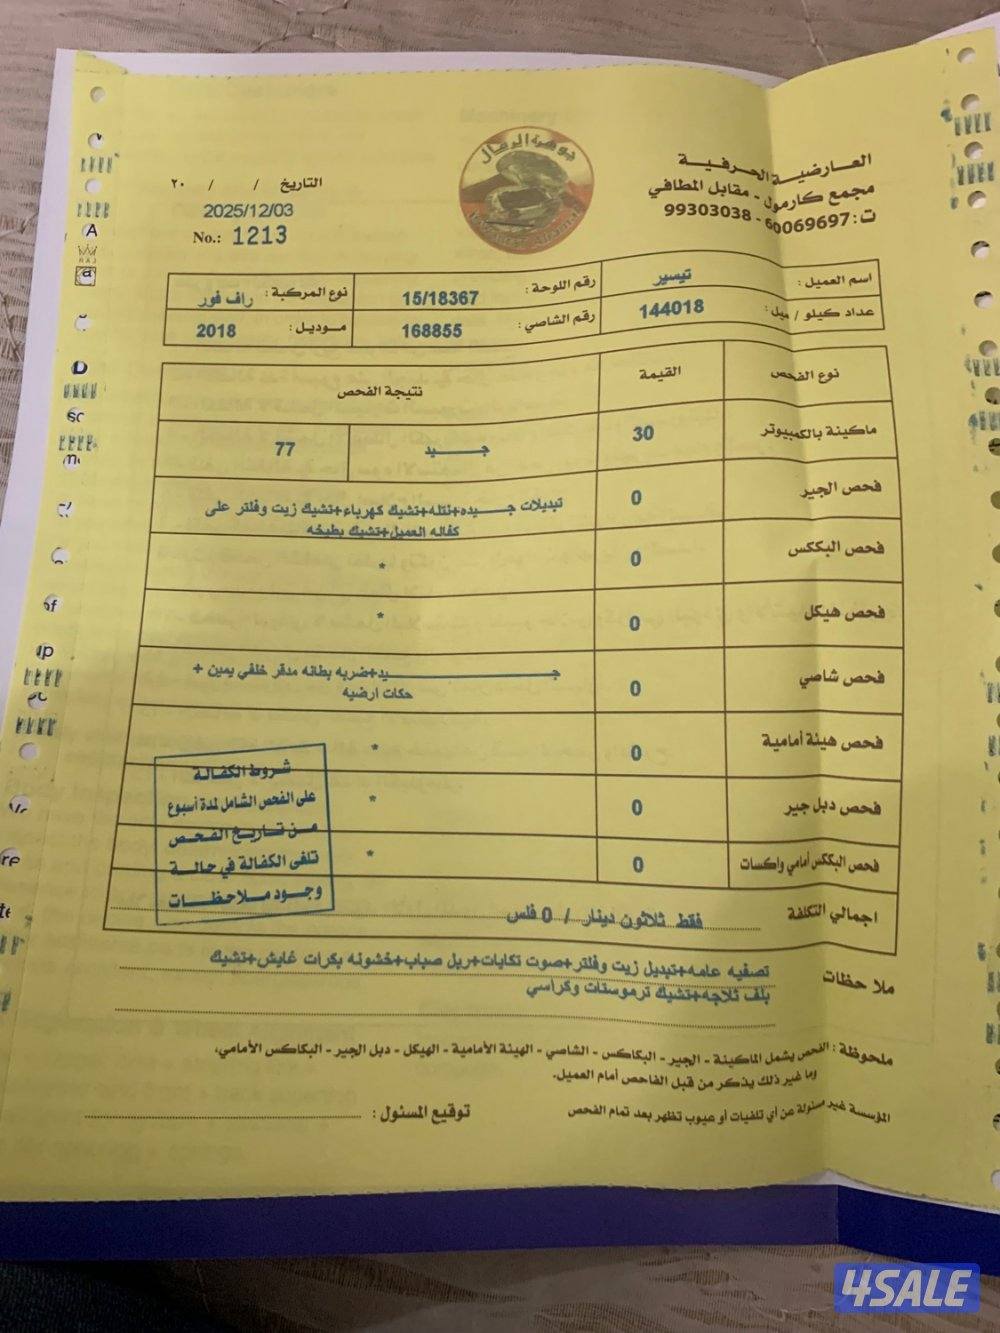 العارضية الحرفية
مجمع كارمول - مقابل المطافي
ت: 60069697 - 99303038
جوهرة الرمال
التاريخ / / ٢٠
2025/12/03
No.: 1213
اسم العميل : تيسير
رقم اللوحة : 15/18367
نوع المركبة : راف فور
عداد كيلو / ميل : 144018
رقم الشاصي : 168855
موديل : 2018
نوع الفحص القيمة نتيجة الفحص
ماكينة بالكمبيوتر 30 جيد 77
فحص الجير 0 تبديلات جيده+نتله+تشيك كهرباء+تشيك زيت وفلتر على
كفاله العميل+تشيك بطيخه
فحص البككس 0 *
فحص هيكل 0 *
فحص شاصي 0 جيد+ضربه بطانه مدقر خلفي يمين +
حكات ارضيه
فحص هيئة أمامية 0 *
فحص دبل جير 0 *
فحص البككس أمامي واكسات 0 *
شروط الكفالة
على الفحص الشامل لمدة أسبوع
من تاريخ الفحص
تلغى الكفالة في حالة
وجود ملاحظات
اجمالي التكلفة فقط ثلاثون دينار / 0 فلس
ملاحظات تصفيه عامه+تبديل زيت وفلتر+صوت تكايات+ربل صباب+خشونه بكرات غايش+تشيك
بلف ثلاجه+تشيك ترموستات وكراسي
ملحوظة : الفحص يشمل الماكينة - الجير - البكاكس - الشاصي - الهيئة الأمامية - الهيكل - دبل الجير - البكاكس الأمامي،
وما غير ذلك يذكر من قبل الفاحص أمام العميل.
المؤسسة غير مسئولة عن أي تلفيات أو عيوب تظهر بعد تمام الفحص
توقيع المسئول :
4SALE